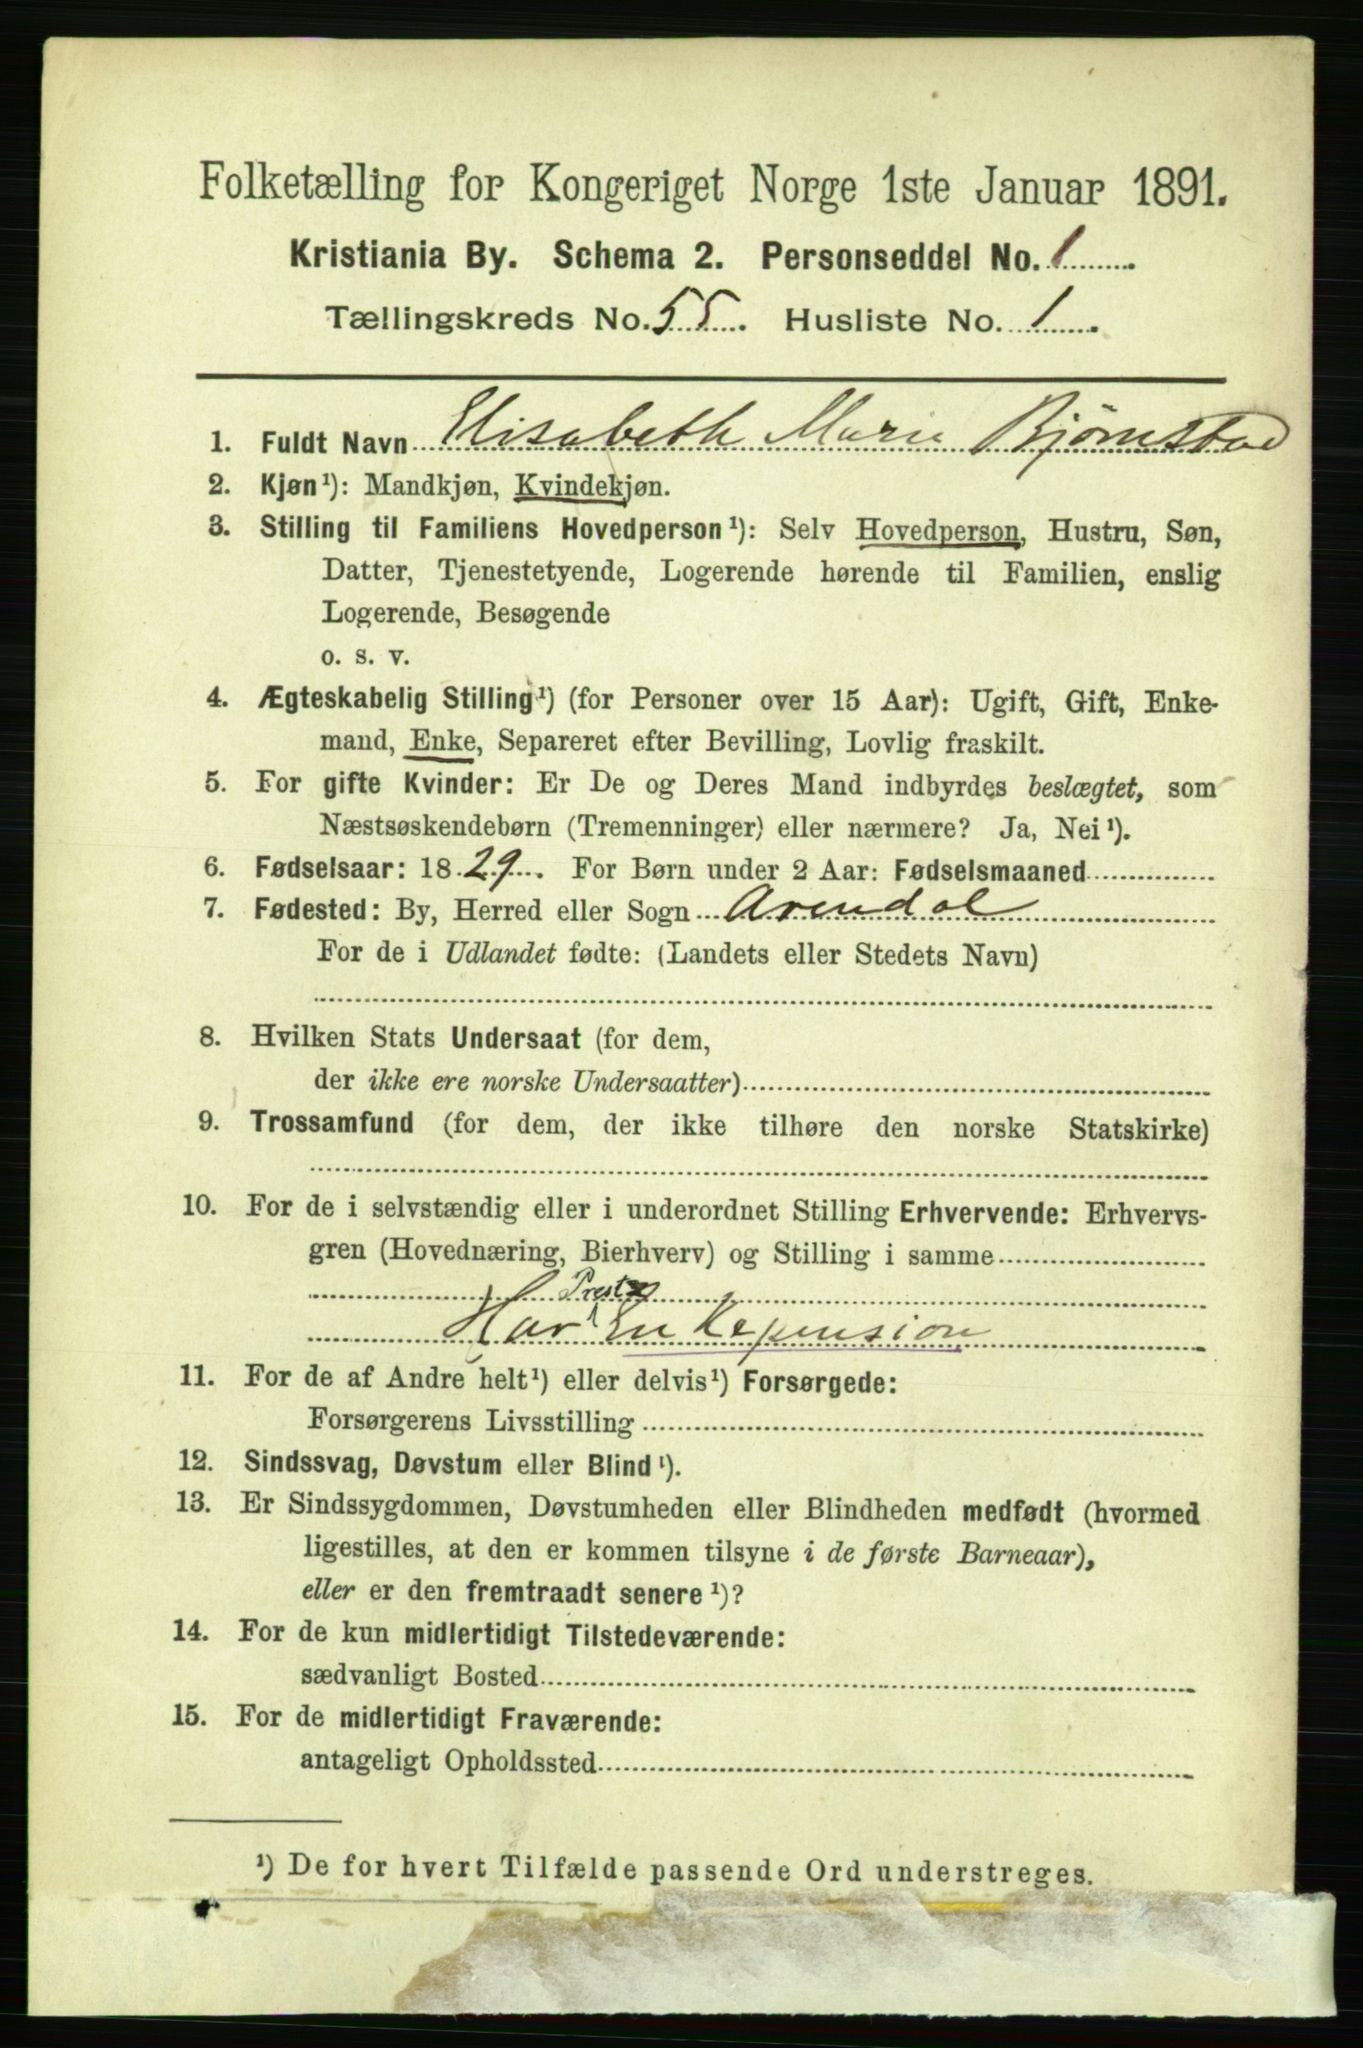 Folketælling for Kongeriget Norge 1ste Januar 1891.
Kristiania By. Schema 2. Personseddel No. 1
Tællingskreds No. 55. Husliste No. 1
1. Fuldt Navn Elisabeth Marie Bjørnstad
2. Kjøn¹): Mandkjøn, Kvindekjøn.
3. Stilling til Familiens Hovedperson¹): Selv Hovedperson, Hustru, Søn,
Datter, Tjenestetyende, Logerende hørende til Familien, enslig
Logerende, Besøgende
o. s. v.
4. Ægteskabelig Stilling¹) (for Personer over 15 Aar): Ugift, Gift, Enke-
mand, Enke, Separeret efter Bevilling, Lovlig fraskilt.
5. For gifte Kvinder: Er De og Deres Mand indbyrdes beslægtet, som
Næstsøskendebørn (Tremenninger) eller nærmere? Ja, Nei¹).
6. Fødselsaar: 1829. For Børn under 2 Aar: Fødselsmaaned
7. Fødested: By, Herred eller Sogn Arendal
For de i Udlandet fødte: (Landets eller Stedets Navn)
8. Hvilken Stats Undersaat (for dem,
der ikke ere norske Undersaatter)
9. Trossamfund (for dem, der ikke tilhøre den norske Statskirke)
10. For de i selvstændig eller i underordnet Stilling Erhvervende: Erhvervs-
gren (Hovednæring, Bierhverv) og Stilling i samme
Preste
Har Enkepension
11. For de af Andre helt¹) eller delvis¹) Forsørgede:
Forsørgerens Livsstilling
12. Sindssvag, Døvstum eller Blind¹).
13. Er Sindssygdommen, Døvstumheden eller Blindheden medfødt (hvormed
ligestilles, at den er kommen tilsyne i de første Barneaar),
eller er den fremtraadt senere¹)?
14. For de kun midlertidigt Tilstedeværende:
sædvanligt Bosted
15. For de midlertidigt Fraværende:
antageligt Opholdssted
¹) De for hvert Tilfælde passende Ord understreges.